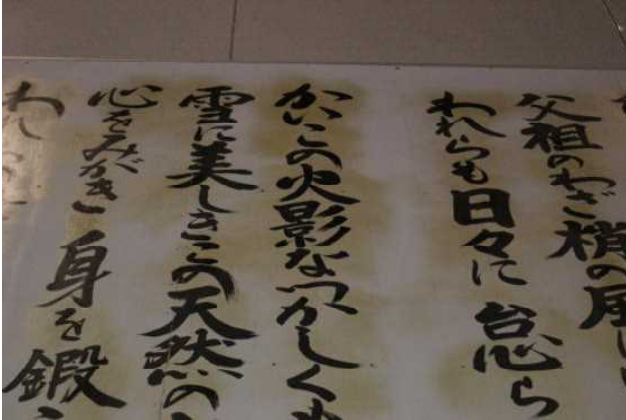 父祖のわざ梢の風に
われらも日々に怠ら
かいこの火影なつかしくも
雪に美しきこの天然の
心をみがき身を鍛
われ